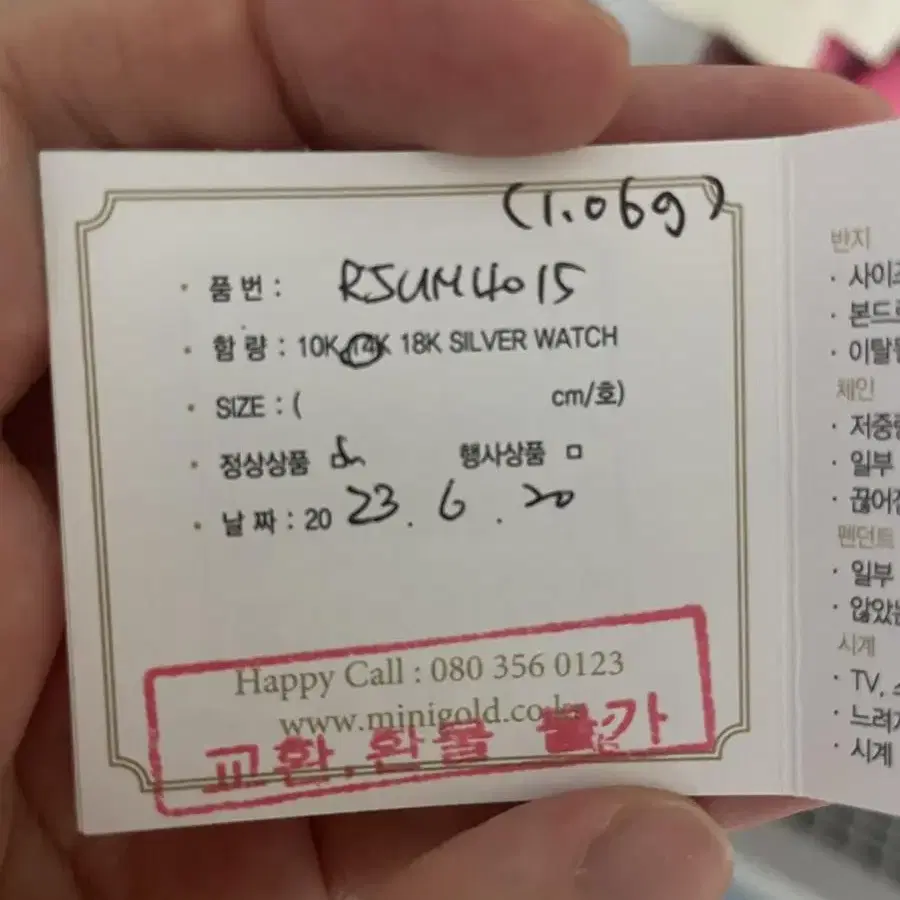 (1.06g)
· 품 번 : RJUM4015
· 함 량 : 10K 14K 18K SILVER WATCH
· SIZE : ( cm/호)
· 정상상품 □ 행사상품 □
· 날 짜 : 20 23 . 6 . 20
Happy Call : 080 356 0123
www.minigold.co.kr
교환,환불 불가
반지
· 사이즈
· 본드
· 이탈
체인
· 저중량
· 일부
· 끊어
펜던트
· 일부
· 않았
시계
· TV,
· 느려
· 시계